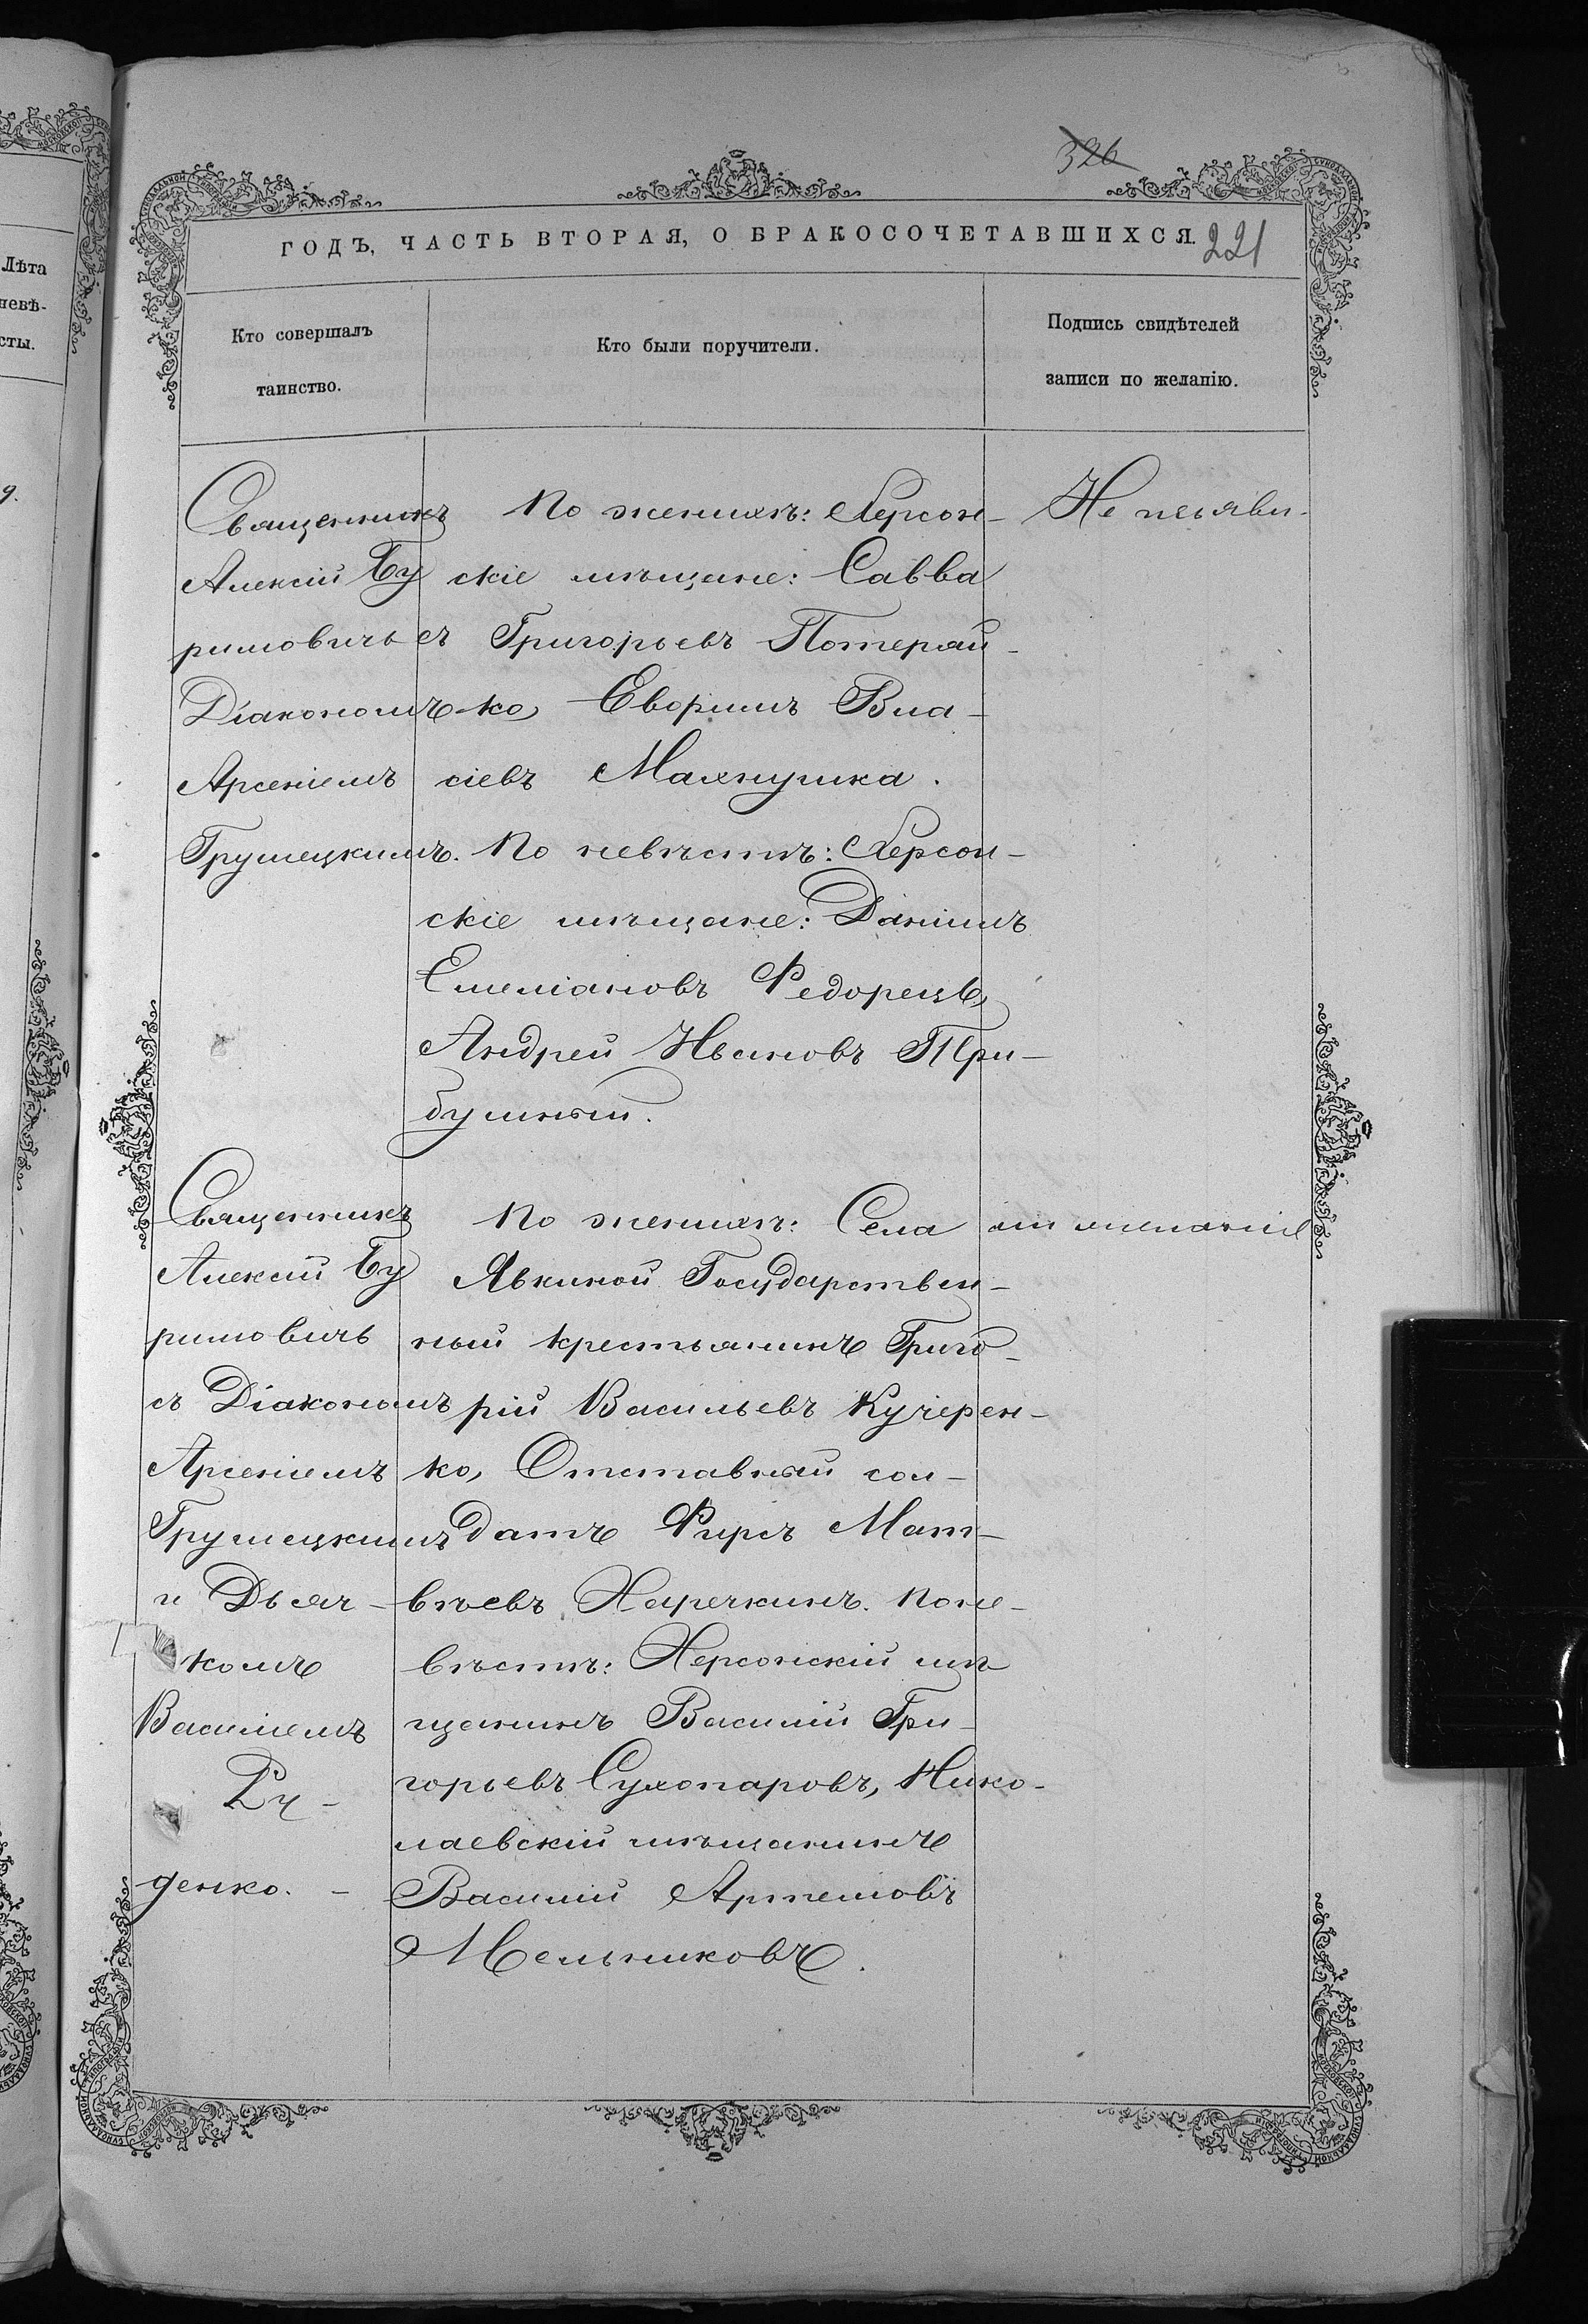 326
ГОДЪ, ЧАСТЬ ВТОРАЯ, О БРАКОСОЧЕТАВШИХСЯ.
221
Лѣта
невѣ-
сты.
Кто совершалъ
таинство.
Кто были поручители.
Подпись свидѣтелей
записи по желанію.
Священникъ
Алексій Бу
римовичъ съ
Діакономъ
Арсеніемъ
Грушецкимъ.
По женихѣ: Херсон-
скіе мѣщане: Савва
Григорьевъ Потерай-
ко, Евфимъ Вла-
сіевъ Махнушка.
По невѣстѣ: Херсон-
скіе мѣщане: Даніилъ
Емеліановъ Федорецъ,
Андрей Ивановъ При-
бульный.
Не изъяви-
Священникъ
Алексій Бу
римовичъ
съ Діакономъ
Арсеніемъ
Грушецкимъ
и Дьяч-
комъ
Василіемъ
Ру-
денко.
По женихѣ: Села
Явкиной Государствен-
ный крестьянинъ Григо-
рій Васильевъ Кучерен-
ко, Отставный сол-
датъ Фирсъ Мат-
вѣевъ Харечкинъ. По не-
вѣстѣ: Херсонскій мѣ
щанинъ Василій Гри-
горьевъ Сухопаровъ, Нико-
лаевскій мѣщанинъ
Василій Артемовъ
Мельниковъ.
ли желанія